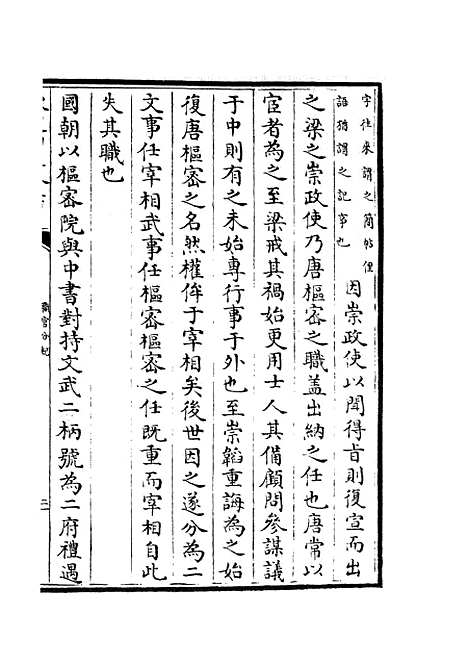 字往來謂之簡帖俚
語猶謂之記事也
因崇政使以聞得旨則復宣而出
之梁之崇政使乃唐樞密之職蓋出納之任也唐常以
宦者為之至梁戒其禍始更用士人其備顧問參謀議
于中則有之未始專行事于外也至崇韜重誨為之始
復唐樞密之名然權侔于宰相矣後世因之遂分為二
文事任宰相武事任樞密樞密之任既重而宰相自此
失其職也
國朝以樞密院與中書對持文武二柄號為二府禮遇
職官分紀
三